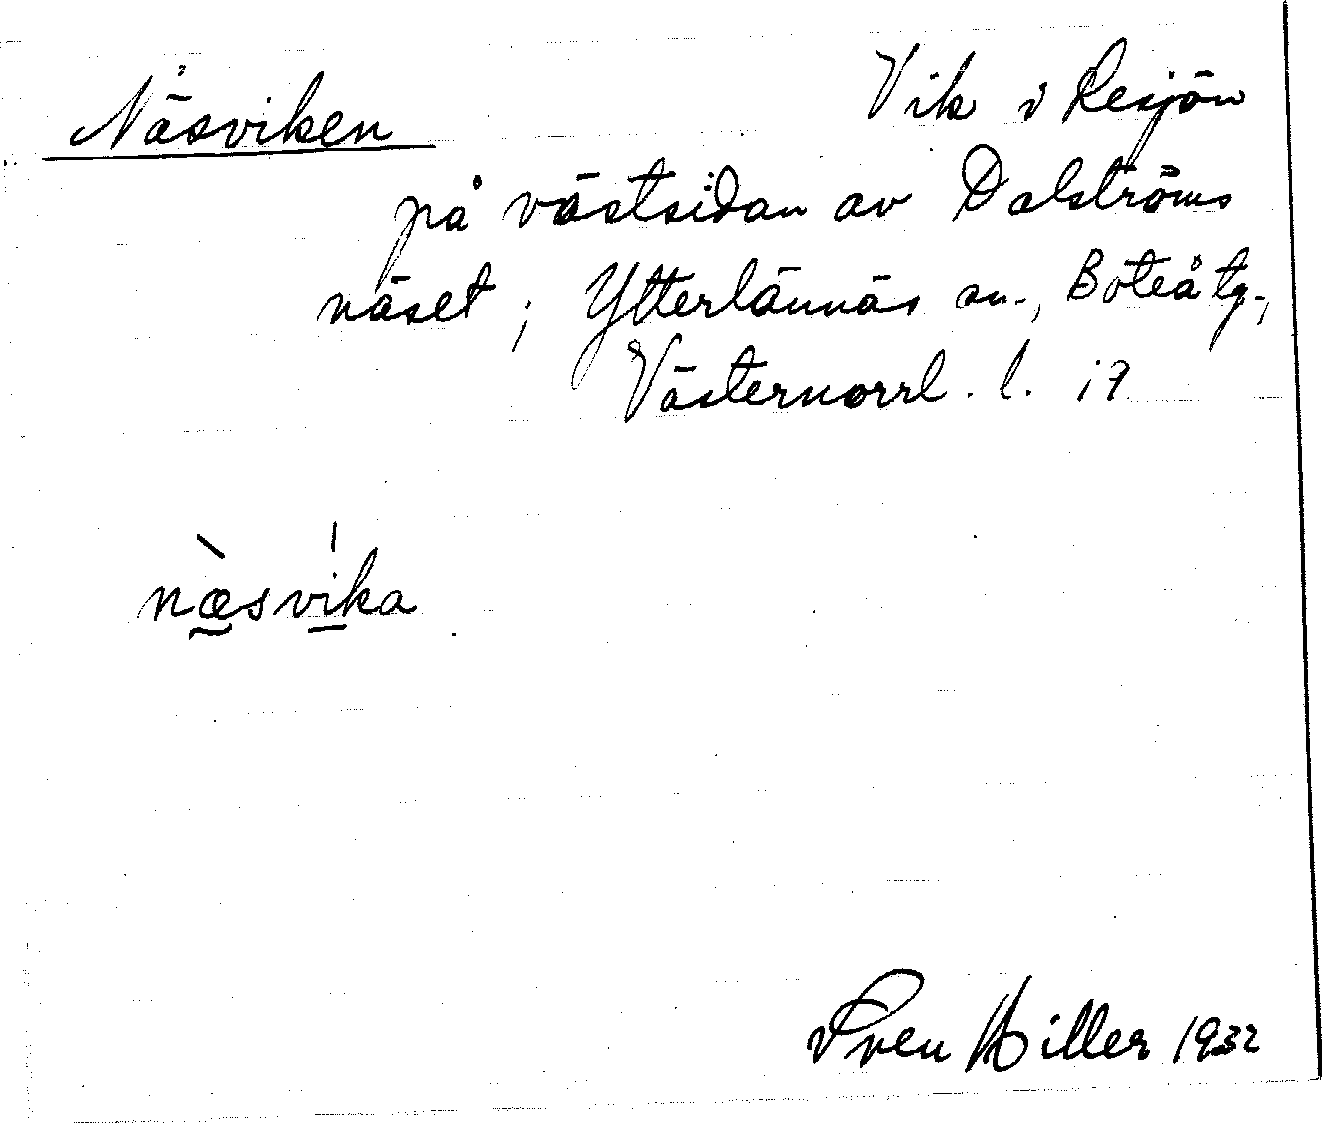 Näsviken
Vik i Resjön
på västsidan av Dalströms
näset; Ytterlännäs sn., Boteå tg.,
Västernorrl. l. 17
næ̀svíka
Sven Hiller 1932